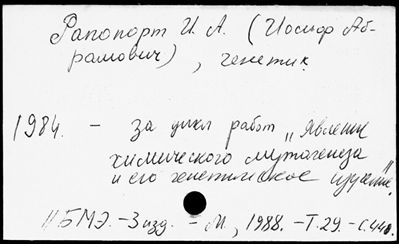 Рапопорт И. А. (Иосиф Аб-
рамович), генетик
1984. - за цикл работ „Явление
химического мутагенеза
и его генетическое изучение"
// БМЭ. - 3 изд. - М., 1988. - Т. 29. - С. 440.